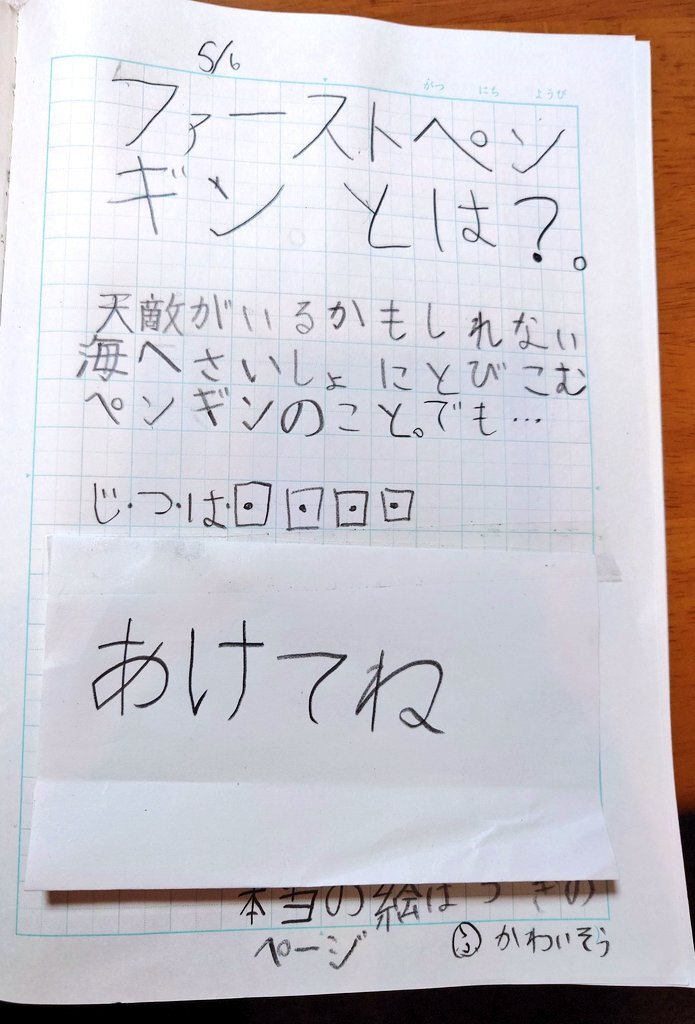 5/6
がつ にち ようび
ファーストペン
ギン とは?。
天敵がいるかもしれない
海へさいしょにとびこむ
ペンギンのこと。でも…
じ・つ・は・
あけてね
本当の絵はつぎの
ページ
かわいそう